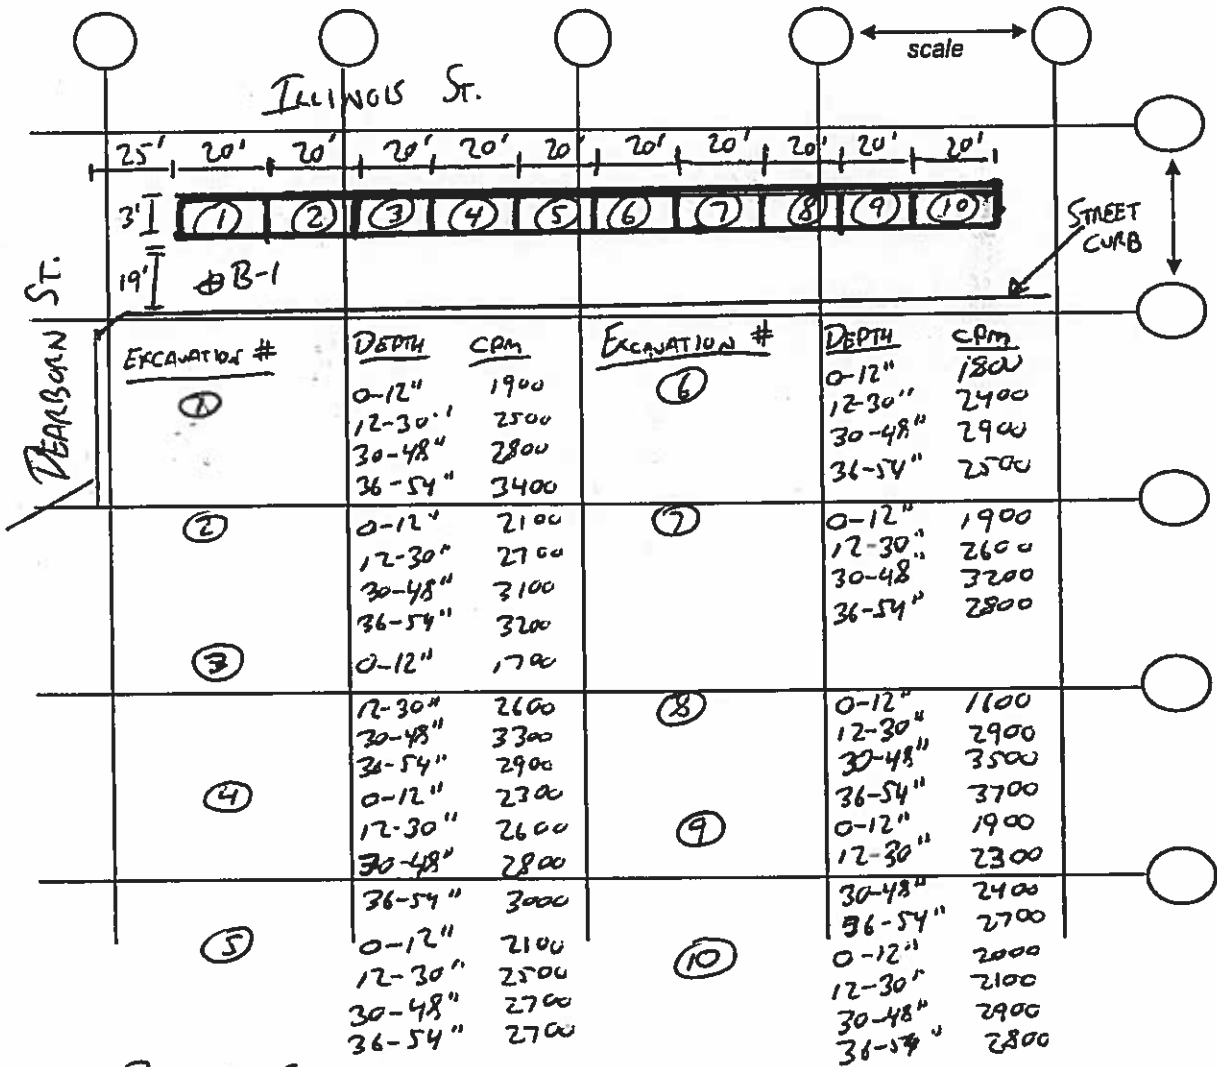 scale
ILLINOIS ST.
25' 20' 20' 20' 20' 20' 20' 20' 20' 20' 20'
3' 1 2 3 4 5 6 7 8 9 10
STREET CURB
19' B-1
DEARBORN ST.
EXCAVATION # DEPTH CPM
1 0-12" 1900
12-30" 2500
30-48" 2800
36-54" 3400
2 0-12" 2100
12-30" 2700
30-48" 3100
36-54" 3200
3 0-12" 1700
12-30" 2600
30-48" 3300
36-54" 2900
4 0-12" 2300
12-30" 2600
30-48" 2800
36-54" 3000
5 0-12" 2100
12-30" 2500
30-48" 2700
36-54" 2700
EXCAVATION # DEPTH CPM
6 0-12" 1800
12-30" 2400
30-48" 2900
36-54" 2500
7 0-12" 1900
12-30" 2600
30-48" 3200
36-54" 2800
8 0-12" 1600
12-30" 2900
30-48" 3500
36-54" 3700
9 0-12" 1900
12-30" 2300
30-48" 2400
36-54" 2700
10 0-12" 2000
12-30" 2100
30-48" 2900
36-54" 2800